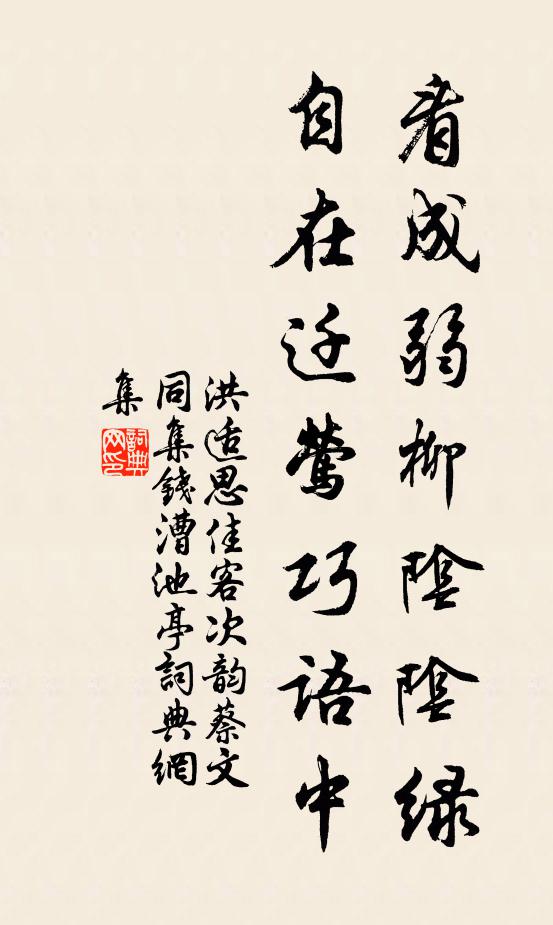 看成弱柳陰陰緑
自在迁鶯巧語中
洪适思佳客次韵蔡文
同集錢漕池亭詞典網
集
詞典
网印